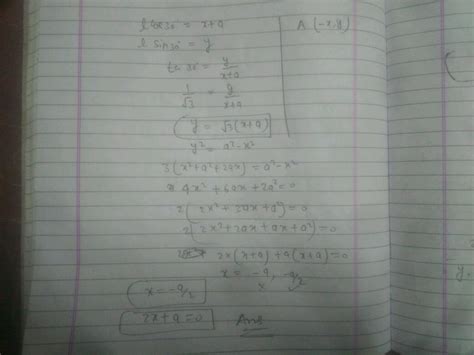 l cos30° = x+a
A (-x, y)
l sin30° = y
tan 30° = y/(x+a)
1/√3 = y/(x+a)
y = √3(x+a)
y² = a²-x²
3(x²+a²+2ax) = a²-x²
4x²+6ax+2a²=0
2(2x²+3ax+a²)=0
2(2x²+2ax+ax+a²)=0
2x(x+a)+a(x+a)=0
x = -a, -a/2
x = -a/2
2x+a=0 Ans